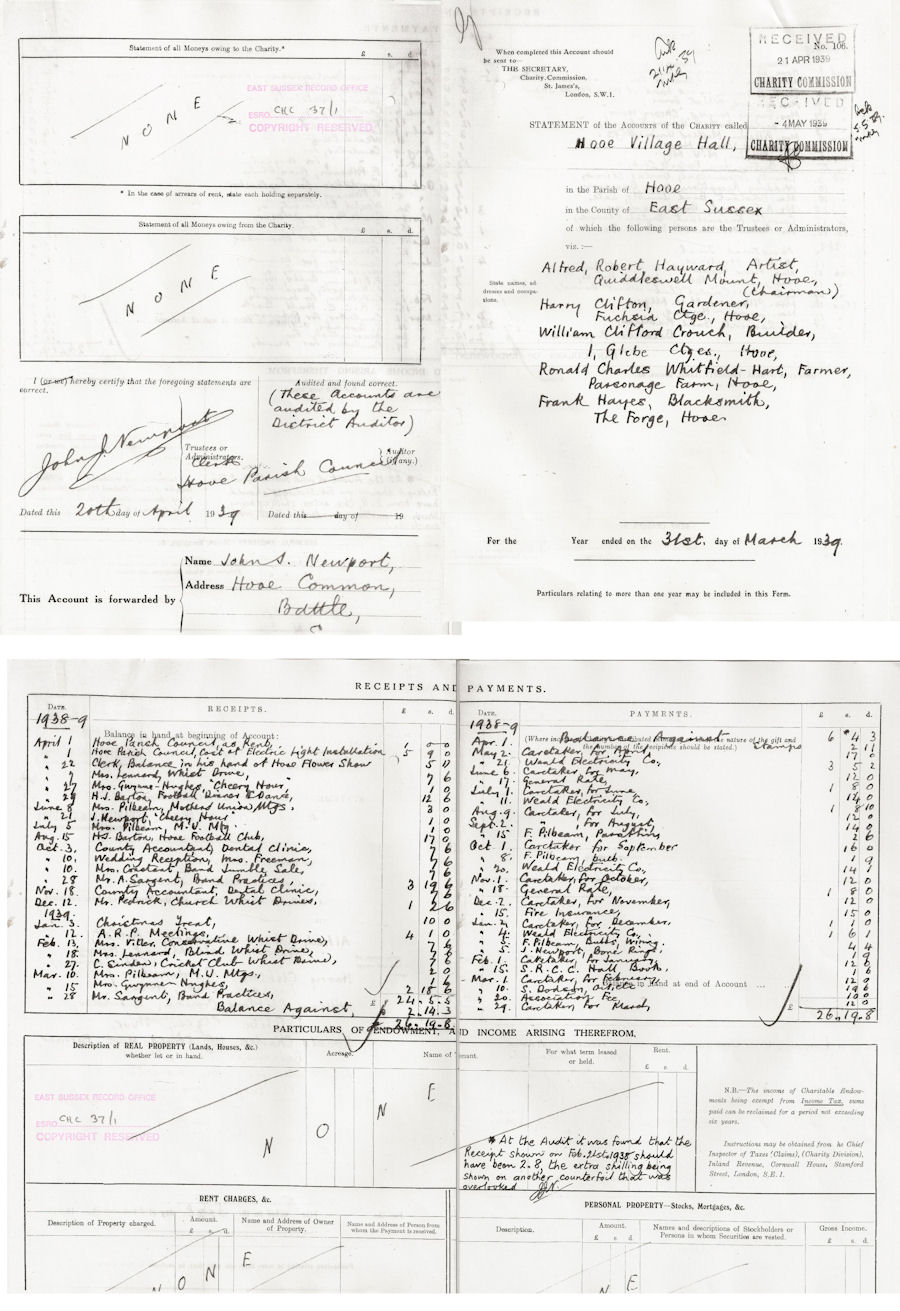 Statement of all Moneys owing to the Charity.*
£ s. d.
EAST SUSSEX RECORD OFFICE
ESRO CHC 37/1
COPYRIGHT RESERVED
NONE
* In the case of arrears of rent, state each holding separately.
Statement of all Moneys owing from the Charity.
£ s. d.
NONE
I (or we) hereby certify that the foregoing statements are
correct.
John J. Newport
Trustees or
Administrators.
Clerk
Hooe Parish Council
Audited and found correct.
(These Accounts are
audited by the
District Auditor)
Auditor
(if any.)
Dated this 20th day of April 1939
Dated this day of 19
This Account is forwarded by
Name John J. Newport,
Address Hooe Common,
Battle,
When completed this Account should
be sent to—
THE SECRETARY,
Charity Commission,
St. James's,
London, S.W.1.
RECEIVED
No. 106.
21 APR 1939
CHARITY COMMISSION
RECEIVED
- 4 MAY 1939
CHARITY COMMISSION
STATEMENT of the ACCOUNTS of the CHARITY called
Hooe Village Hall,
in the Parish of Hooe
in the County of East Sussex
of which the following persons are the Trustees or Administrators,
viz. :—
State names, ad-
dresses and occupa-
tions.
Alfred, Robert Hayward, Artist,
Quiddleswell Mount, Hooe,
(Chairman)
Harry Clifton, Gardener,
Fuchsia Ctge., Hooe,
William Clifford Crouch, Builder,
1, Glebe Ctges., Hooe,
Ronald Charles Whitfield-Hart, Farmer,
Parsonage Farm, Hooe,
Frank Hayes, Blacksmith,
The Forge, Hooe.
For the Year ended on the 31st. day of March 1939.
Particulars relating to more than one year may be included in this Form.
RECEIPTS AND PAYMENTS.
DATE. RECEIPTS. £ s. d.
1938-9
Balance in hand at beginning of Account:
April 1 Hooe Parish Council, as Rent,
" 1 Hooe Parish Council, Cost of Electric Light Installation 5 9 0
" 22 Clerk, Balance in his hand of Hooe Flower Show
" 7 Mrs. Lennard, Whist Drive, 7 6
" 27 Mrs. Gwynne-Hughes, "Cheery Hour"
H.J. Barton, Football Dinner & Dance, 12 6
June 8 Mrs. Pilbeam, Mothers Union Mtgs. 3 0
" 21 J. Newport, "Cheery Hour" 1 0
July 5 Mrs. Pilbeam, M.U. Mtg. 1 0
Aug. 15 H.J. Barton, Hooe Football Club, 17 0
Oct. 3. County Accountant, Dental Clinic, 7 6
" 10. Wedding Reception, Mrs. Freeman, 7 6
" 10. Mrs. Constant, Band Jumble Sale, 7 6
" 28 Mr. A. Sargent, Band Practices,
Nov. 18. County Accountant, Dental Clinic,
Dec. 12. Mr. Pedrick, Church Whist Drives, 1 2 6
1939.
Jan. 3. Christmas Treat, 10 0
" 12. A.R.P. Meetings, 4 10 0
Feb. 13. Mrs. Viller, Conservative Whist Drive, 7 6
" 18. Mrs. Lennard, Blind Whist Drive, 7 6
" 27. C. Sinden, Cricket Club Whist Drive, 7 6
Mar. 10. Mrs. Pilbeam, M.U. Mtgs., 2 0
" 15 Mrs. Gwynne-Hughes,
" 28 Mr. Sargent, Band Practices, 2 18 6
£ 24. 5. 5
Balance Against, 2. 14. 3
26. 19. 8
DATE. PAYMENTS. £ s. d.
1938-9
Apr. 1. Balance Against 6 * 4 3
Stamps 2 11
May 2. Caretaker, for April 17 0
" 21 Weald Electricity Co, 3 5 2
June 6. Caretaker, for May, 12 0
" 17. General Rate, 1 8 0
July 1. Caretaker, for June,
" 11. Weald Electricity Co,
Aug. 9. Caretaker, for July,
Sept. 2. " for August,
" 15 F. Pilbeam, 2 6
Oct 1. Caretaker for September 16 0
" 8. F. Pilbeam, bulb. 1 9
" 20. Weald Electricity Co,
Nov. 1. Caretaker, for October, 12 0
" 18. General Rate, 1 8 0
Dec. 2. Caretaker, for November, 12 0
" 15. Fire Insurance, 15 0
Jan. 2. Caretaker, for December, 1 1 0
" 4. Weald Electricity Co, 1 6 1
" 5. F. Pilbeam, Bulbs, Wiring. 4 4
" 5. J. Newport, Bone Ring, 1 9
Feb. 1. Caretaker, for January, 12 0
" 15. S.R.C.C. Hall Book, 1 6
Mar. 1. Caretaker, for February,
in hand at end of Account ...
" 10. S. Dodson, 19 6
" 20. Association Fee 10 0
" 29. Caretaker, for March, 12 0
£ 26. 19. 8
PARTICULARS OF ENDOWMENT, AND INCOME ARISING THEREFROM.
Description of REAL PROPERTY (Lands, Houses, &c.)
whether let or in hand.
Acreage.
Name of Tenant.
For what term leased
or held.
Rent.
£ s. d.
EAST SUSSEX RECORD OFFICE
ESRO CHC 37/1
COPYRIGHT RESERVED
NONE
* At the Audit it was found that the
Receipt shown on Feb. 21st. 1938 should
have been 2. 8, the extra shilling being
shown on another counterfoil that was
overlooked
N.B.—The income of Charitable Endow-
ments being exempt from Income Tax, sums
paid can be reclaimed for a period not exceeding
six years.
Instructions may be obtained from he Chief
Inspector of Taxes (Claims), (Charity Division),
Inland Revenue, Cornwall House, Stamford
Street, London, S.E.1.
RENT CHARGES, &c.
Description of Property charged.
Amount.
£ s. d.
Name and Address of Owner
of Property.
Name and Address of Person from
whom the Payment is received.
NONE
PERSONAL PROPERTY—Stocks, Mortgages, &c.
Description.
Amount.
£ s. d.
Names and descriptions of Stockholders or
Persons in whom Securities are vested.
Gross Income.
£ s. d.
NE